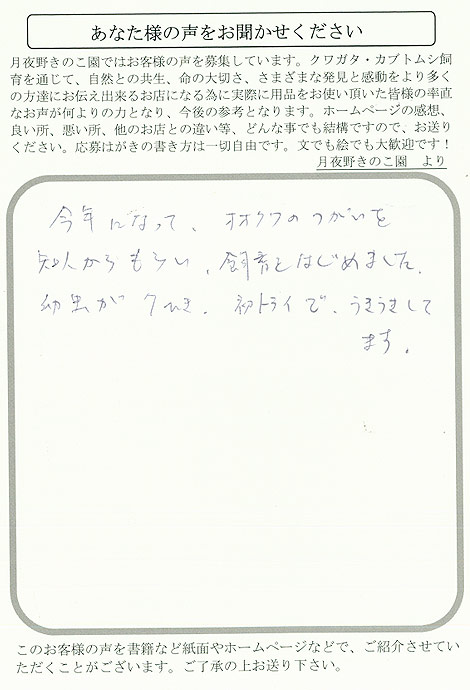 あなた様の声をお聞かせください
月夜野きのこ園ではお客様の声を募集しています。クワガタ・カブトムシ飼
育を通じて、自然との共生、命の大切さ、さまざまな発見と感動をより多く
の方達にお伝え出来るお店になる為に実際に用品をお使い頂いた皆様の率直
なお声が何よりの力となり、今後の参考となります。ホームページの感想、
良い所、悪い所、他のお店との違い等、どんな事でも結構ですので、お送り
ください。応募はがきの書き方は一切自由です。文でも絵でも大歓迎です！
月夜野きのこ園　より
今年になって、オオクワのつがいを
知人からもらい、飼育をはじめました。
幼虫が7ひき。初トライで、うきうきして
ます。
このお客様の声を書籍など紙面やホームページなどで、ご紹介させてい
ただくことがございます。ご了承の上お送り下さい。